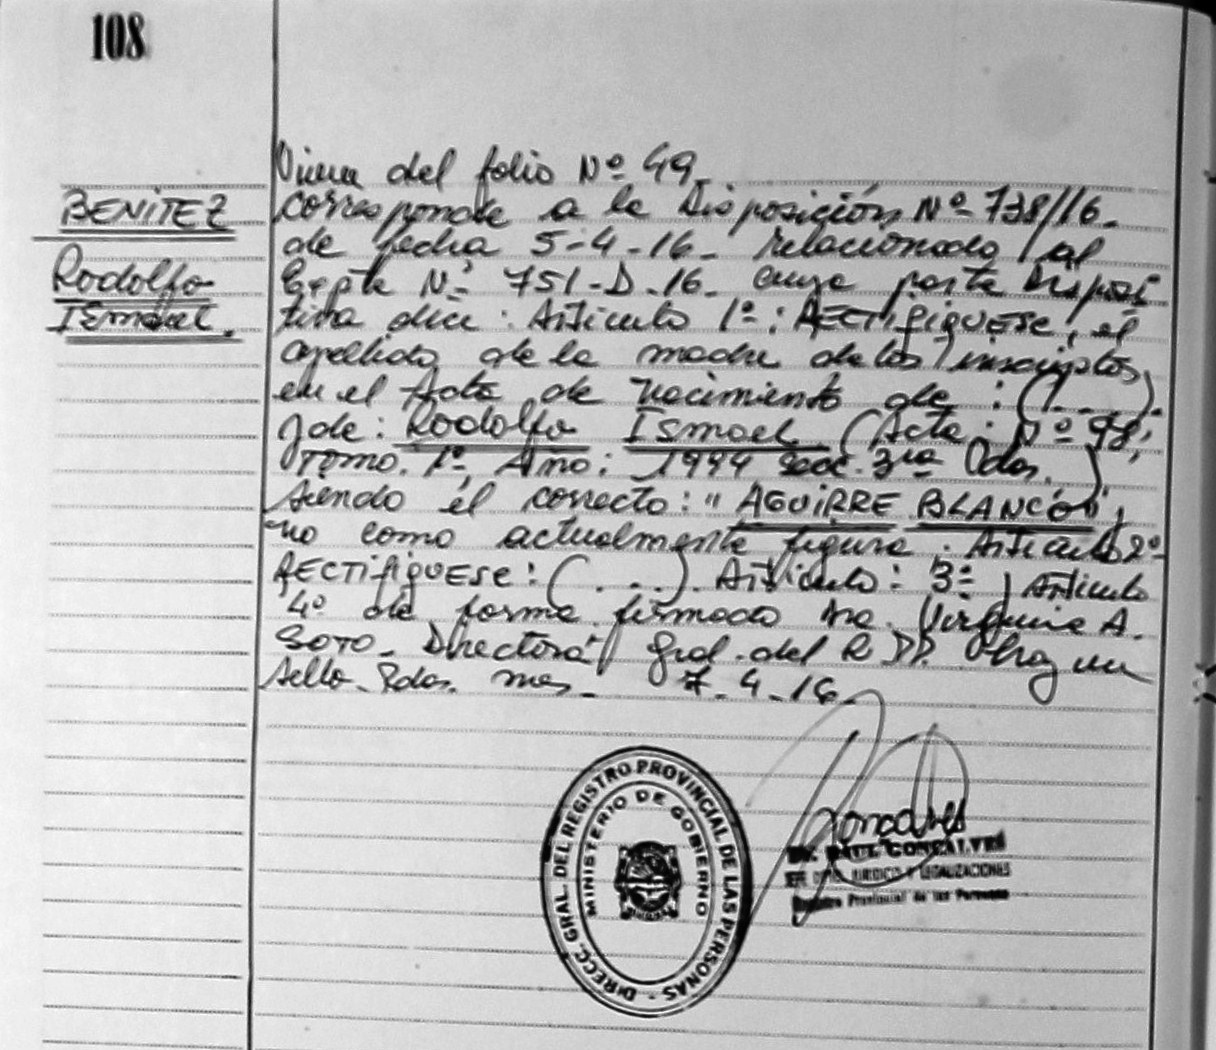 108
BENITEZ
Rodolfo
Ismael.
Viene del folio Nº 49
corresponde a la Disposición Nº 738/16.
de fecha 5-4-16. relacionado al
Expte Nº 751-D-16. cuya parte disposi
tiva dice: Articulo 1º: RECTIFIQUESE, el
apellido de la madre de los inscriptos,
en el Acta de nacimiento de: (...).
de: Rodolfo Ismael (Acta: Nº 98,
Tomo. 1º, Año: 1994 Secc. 3ra Pdas.)
siendo el correcto: "AGUIRRE BLANCO",
no como actualmente figura. Articulo 2º
RECTIFIQUESE: (...). Articulo: 3º, Articulo
4º de forma firmado Dra. Virginia A.
SOTO. Directora Gral. del R.P.P. Hay un
sello. Pdas. mes. 7-4-16.
DIRECC. GRAL. DEL REGISTRO PROVINCIAL DE LAS PERSONAS -
MINISTERIO DE GOBIERNO
Goncalves
GONCALVES
JURIDICO Y LEGALIZACIONES
Registro Provincial de las Personas